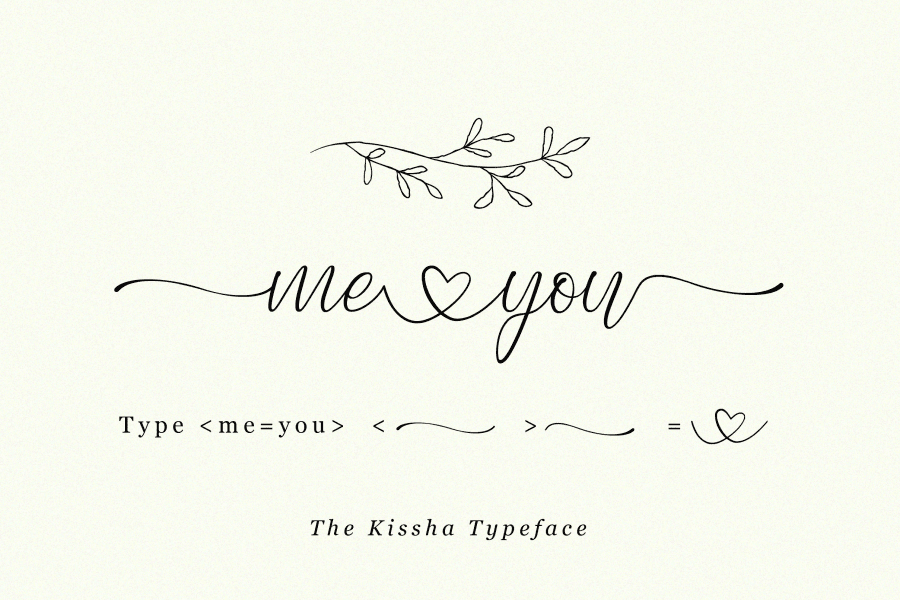 me♡you
Type <me=you> < > =
The Kissha Typeface